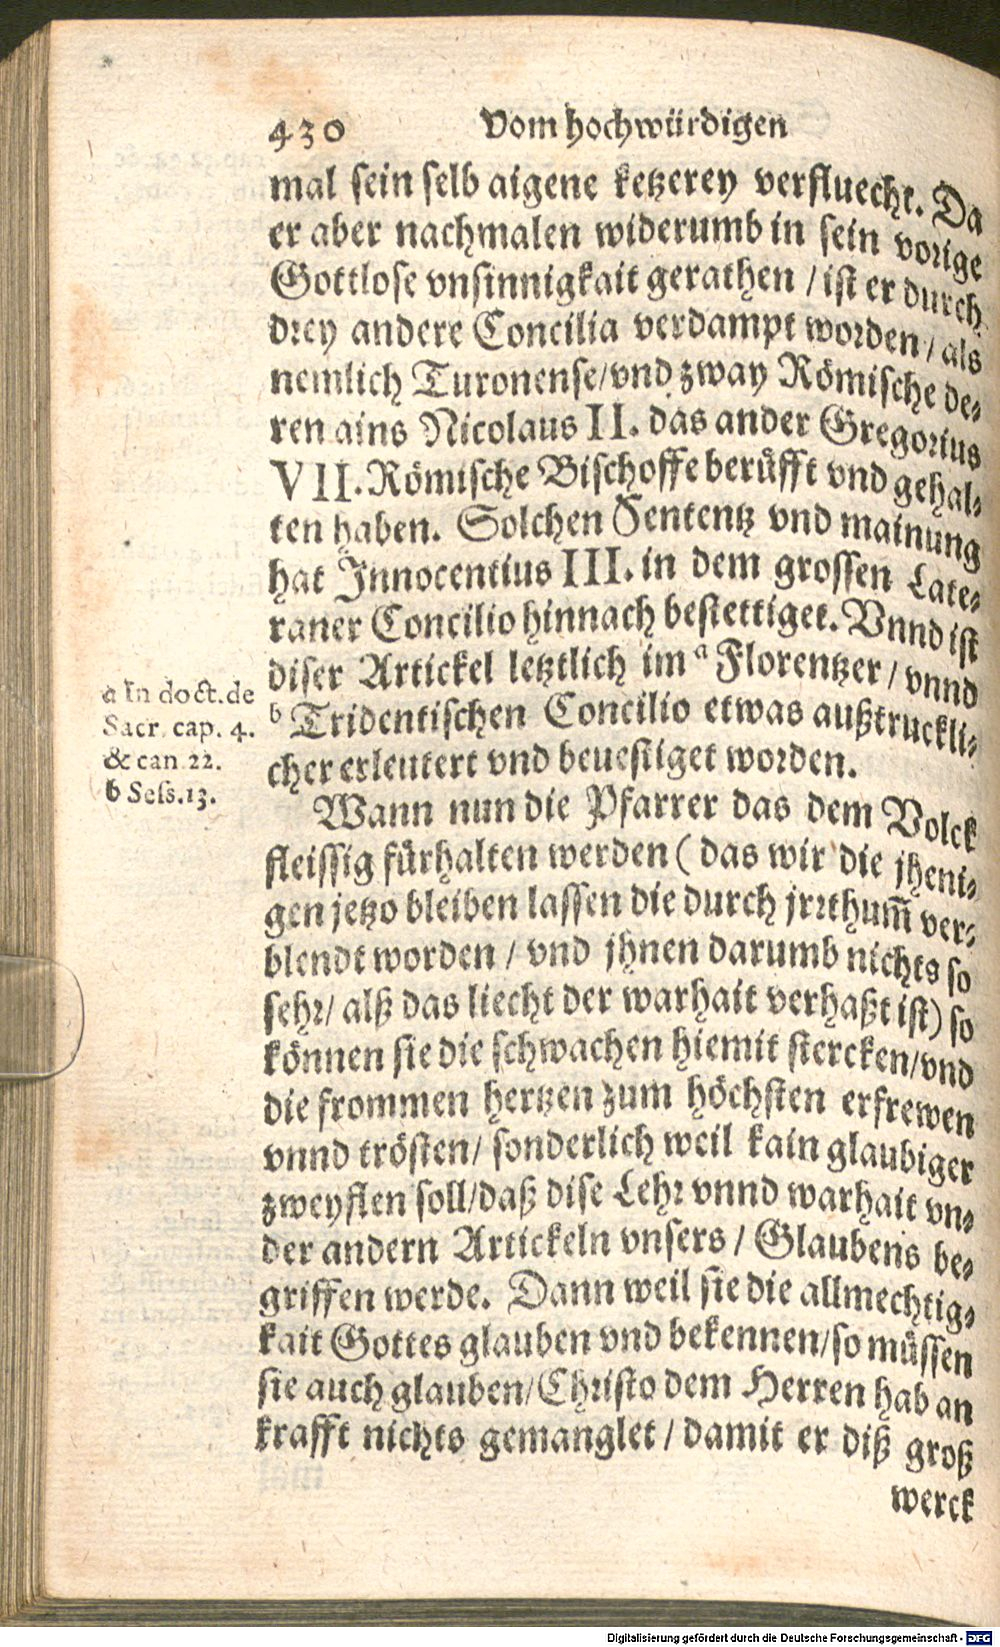 430 Vom hochwürdigen
mal sein selb aigene ketzerey verfluecht. Da
er aber nachmalen widerumb in sein vorige
Gottlose vnsinnigkait gerathen / ist er durch
drey andere Concilia verdampt worden / als
nemlich Turonense/vnd zway Römische de-
ren ains Nicolaus II. das ander Gregorius
VII. Römische Bischoffe berüfft vnd gehal-
ten haben. Solchen Sententz vnd mainung
hat Innocentius III. in dem grossen Late-
raner Concilio hinnach bestettiget. Vnnd ist
diser Artickel letztlich im a Florentzer / vnnd
b Tridentischen Concilio etwas außtruckli-
cher erleutert vnd beuestiget worden.
a In doct. de
Sacr. cap. 4.
& can 22.
b Sess. 13.
Wann nun die Pfarrer das dem Volck
fleissig fürhalten werden ( das wir die jheni-
gen jetzo bleiben lassen die durch jrrthum̃ ver-
blendt worden / vnd jhnen darumb nichts so
sehr/ alß das liecht der warhait verhaßt ist) so
können sie die schwachen hiemit stercken/vnd
die frommen hertzen zum höchsten erfrewen
vnnd trösten/ sonderlich weil kain glaubiger
zweyflen soll/daß dise Lehr vnnd warhait vn-
der andern Artickeln vnsers / Glaubens be-
griffen werde. Dann weil sie die allmechtig-
kait Gottes glauben vnd bekennen/so müssen
sie auch glauben/Christo dem Herren hab an
krafft nichts gemanglet / damit er diß groß
werck
Digitalisierung gefördert durch die Deutsche Forschungsgemeinschaft - DFG